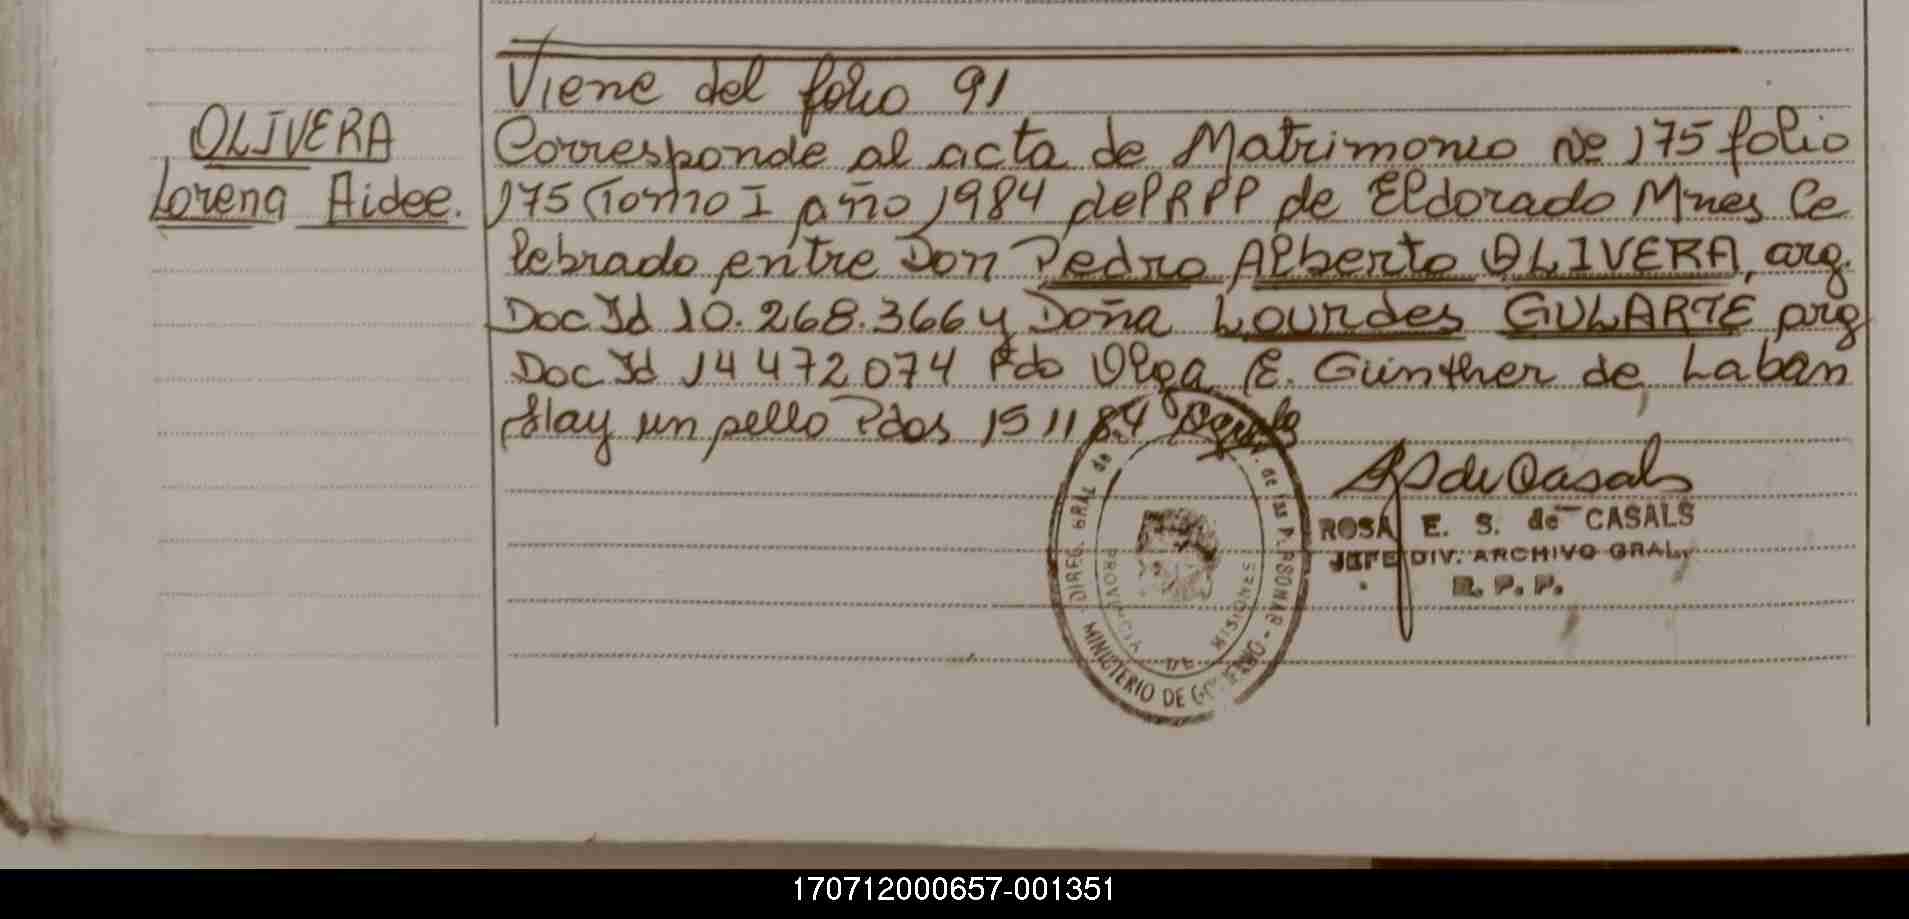 Viene del folio 91
OLIVERA
Lorena Aidee.
Corresponde al acta de Matrimonio Nº 175 folio
175 Tomo I año 1984 del RPP de Eldorado Mnes Ce
lebrado entre Don Pedro Alberto OLIVERA, arg.
Doc Id 10.268.366 y Doña Lourdes GULARTE arg
Doc Id 14 472 074 Fdo Olga E. Günther de Laban
Hay un sello Pdas 15 11 84
ROSA E. S. de CASALS
JEFE DIV. ARCHIVO GRAL.
R. P. P.
DIREG. GRAL de
de las P.
MINISTERIO DE GOBIERNO
PROVINCIA DE MISIONES
170712000657-001351